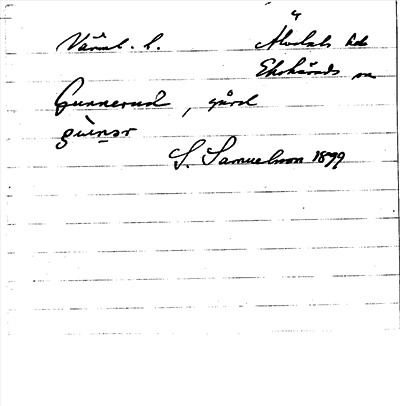 Värml. l. Älvdals hd
Ekshärads sn
Gunnerud, gård
gùnər
S. Samuelsson 1899